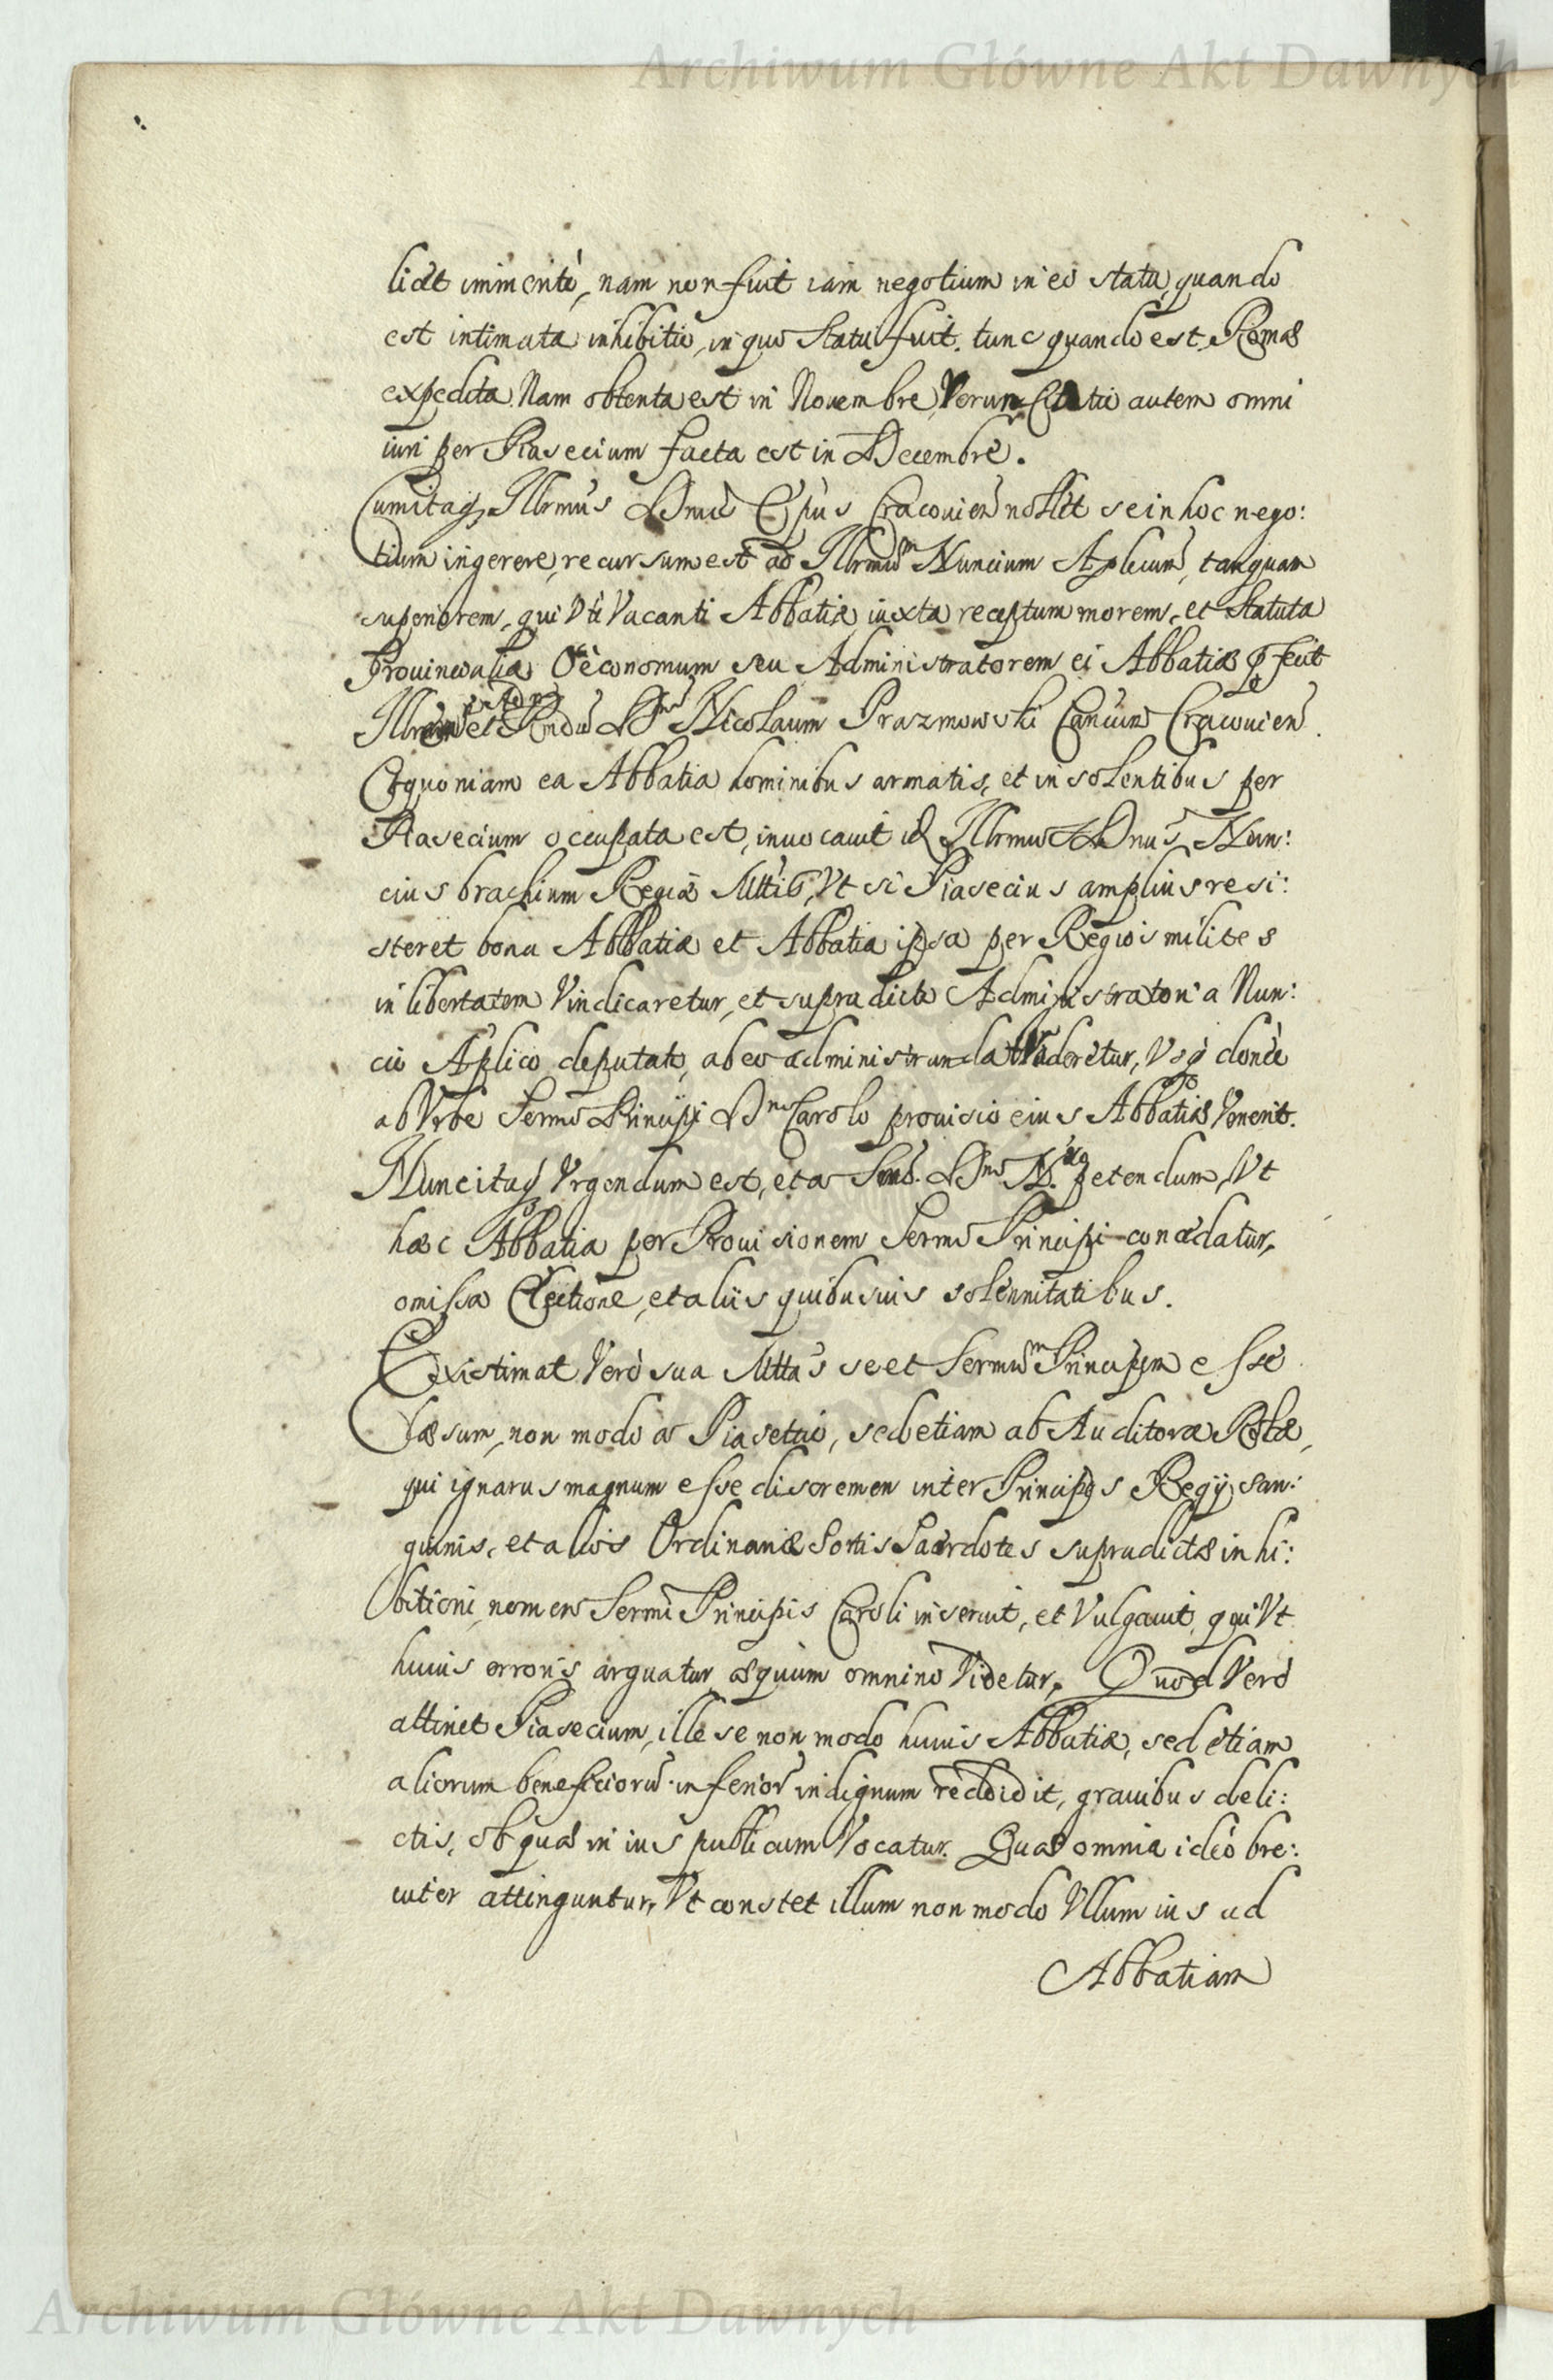 Archiwum Główne Akt Dawnych
licet immeritò, nam non fuit iam negotium in eo statu, quando
est intimata inhibitio, in quo statu fuit tunc quando est Romæ
expedita. Nam obtenta est in Nouembre, autem omni
iuri per Piasecium facta est in Decembre.
Cum itaq Illrmus Dnus Epus Cracouien nollet se in hoc nego:
tium ingerere, recursum est ad Illrmum Nuncium Aplicum, tanquam
superiorem, qui Vti Vacanti Abbatiæ iuxta receptum morem, et Statuta
Prouincialia Oeconomum seu Administratorem ei Abbatiæ pfecit
et Rndum Dnum Nicolaum Prazmowski Cancum Cracouien.
Et quoniam ea Abbatia hominibus armatis, et insolentibus per
Piasecium occupata est, inuocauit Illrmus Dnus Nun:
cius brachium Regiæ Mttis, Vt si Piasecius amplius resi:
steret bona Abbatiæ et Abbatia ipsa per Regios milites
in libertatem Vindicaretur, et supradicto Administratori a Nun:
cio Aplico deputato, ab eo administranda traderetur, Vsq donec
ab Vrbe Sermo Principi Dno Carolo prouisio eius Abbatiæ Venerit.
Nunc itaq Vrgendum est, et a Smo. Dno N. petendum, Vt
hæc Abbatia per Prouisionem Sermo Principi concedatur,
omissa Electione, et aliis quibusuis solennitatibus.
Existimat Verò sua Mttas se et Sermum Principem esse
læsum, non modo a Piasetio, sed etiam ab Auditore Rotæ,
qui ignarus magnum esse discremen inter Principes Regij san:
guinis, et alios Ordinariæ Sortis Sacerdotes supradictæ inhi:
bitioni nomen Sermi Principis Caroli inseruit, et Vulgauit, qui Vt
huius erroris arguatur æquum omnino Videtur. Quod Verò
attinet Piasecium, ille se non modo huius Abbatiæ, sed etiam
aliorum beneficiorum inferior indignum reddidit, grauibus deli:
ctis, ob quæ in ius publicum Vocatur. Quæ omnia ideò bre:
uiter attinguntur, Vt constet illum non modo Vllum ius ad
Abbatiam
Archiwum Główne Akt Dawnych